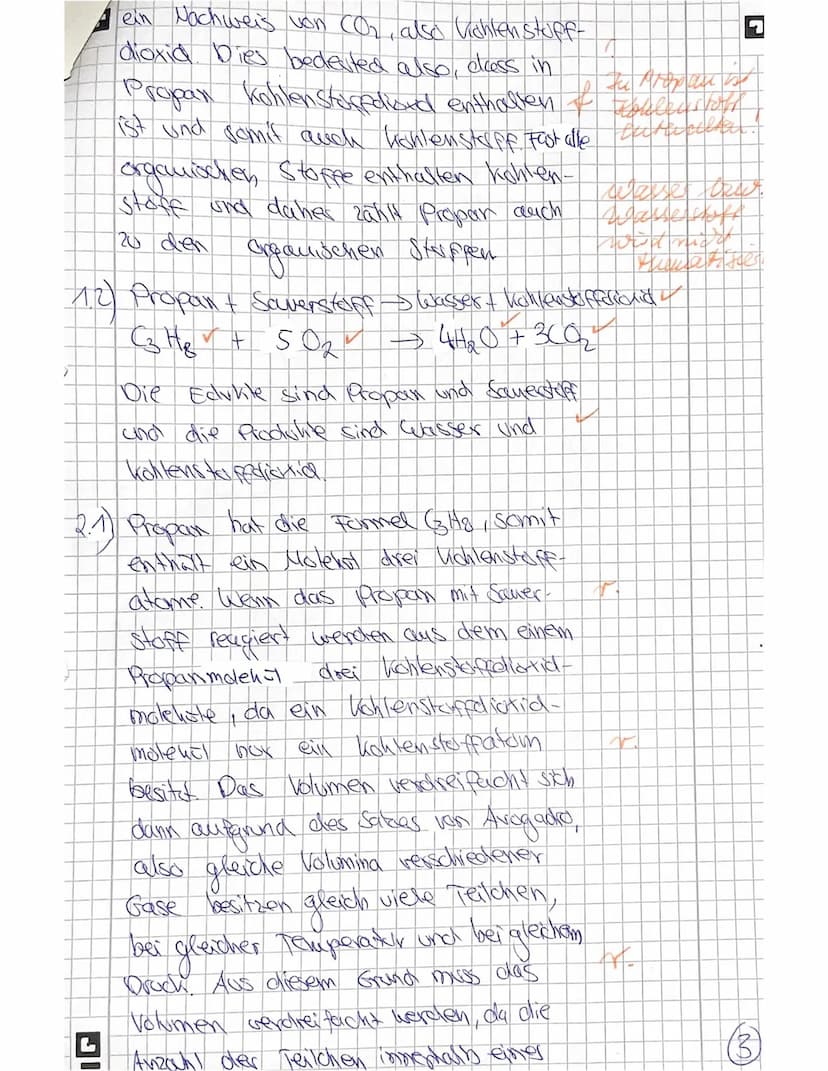 ein Nachweis von CO2, also Kohlenstoff-
dioxid. Dies bedeuted also, dass in
Propan Kohlenstoffdioxid enthalten f
In Propan ist
Kohlenstoff
enthalten!
ist und somit auch Kohlenstoff. Fast alle
organischen Stoffe enthalten Kohlen-
stoff und daher zählt Propan auch
zu den organischen Stoffen
Wasser bzw.
Wasserstoff
wird nicht
thematisier
1.2) Propan + Sauerstoff → Wasser + Kohlenstoffdioxid ✓
C3H8 ✓ + 5 O2 ✓ → 4H2O ✓ + 3CO2 ✓
Die Edukte sind Propan und Sauerstoff
und die Produkte sind Wasser und ✓
Kohlenstoffdioxid.
2.1) Propan hat die Formel C3H8, somit
enthält ein Molekül drei Kohlenstoff-
atome. Wenn das Propan mit Sauer- r.
stoff reagiert werden aus dem einem
Propanmolekül drei Kohlenstoffdioxid-
moleküle, da ein Kohlenstoffdioxid-
molekül nur ein Kohlenstoffatom r.
besitzt. Das Volumen verdreifacht sich
dann aufgrund des Satzes von Avogadro,
also gleiche Volumina verschiedener
Gase besitzen gleich viele Teilchen,
bei gleicher Temperatur und bei gleichem
Druck. Aus diesem Grund muss das r.
Volumen verdreifacht werden, da die
Anzahl der Teilchen innerhalb eines
3